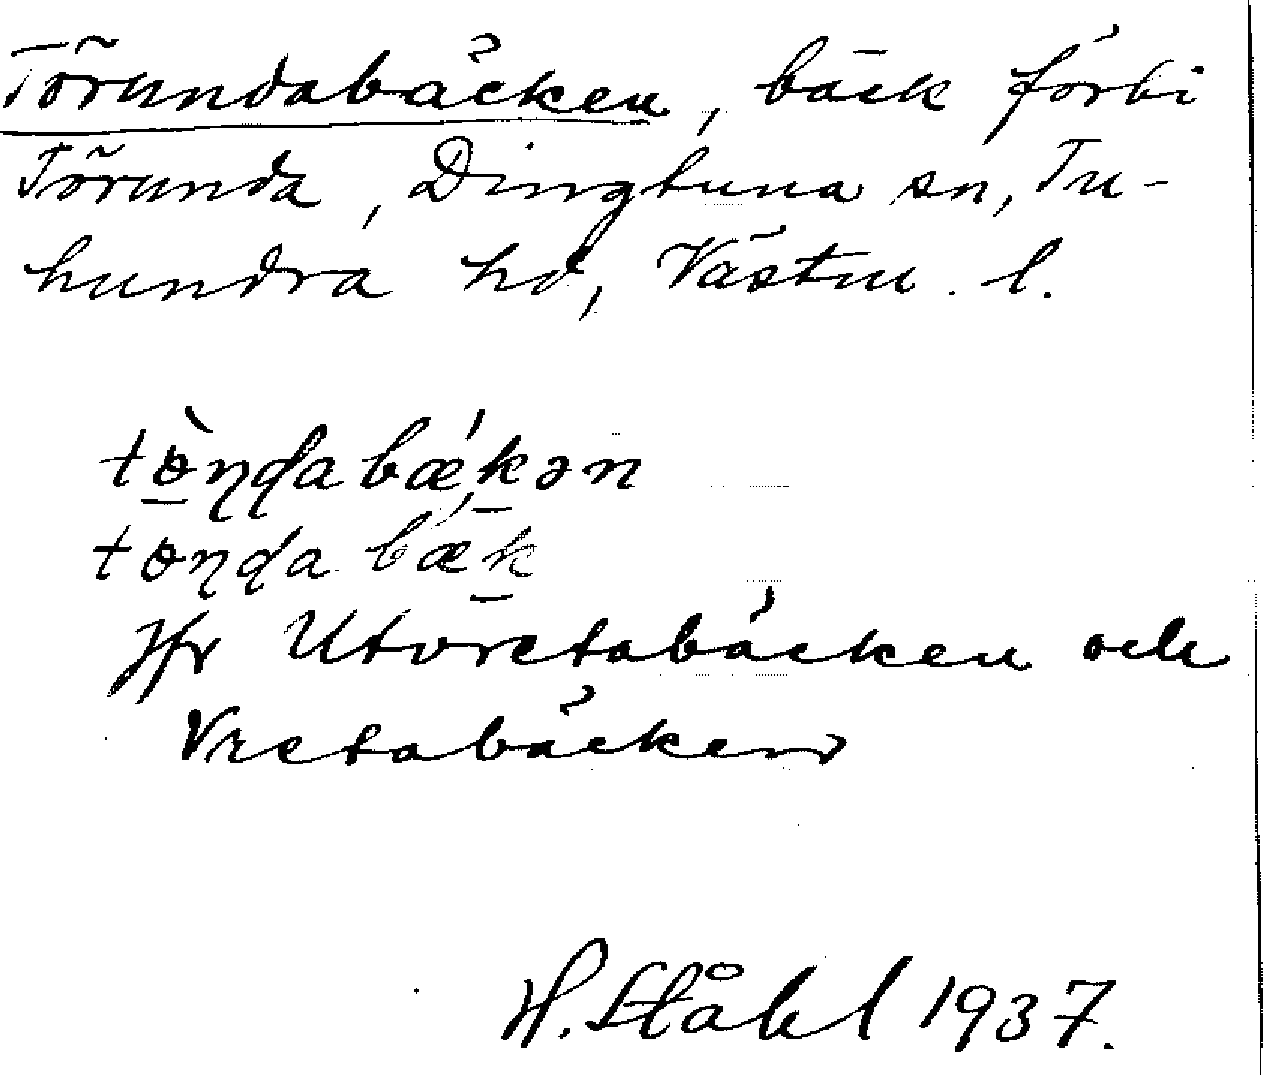 Törundabäcken, bäck förbi
Törunda, Dingtuna sn, Tu-
hundra hd, Västm. l.
tɵ̀ɳɖabǽkən
tɵɳɖa bǽk
Jfr Utvretabäcken och
Vretabäcken
H. Ståhl 1937.